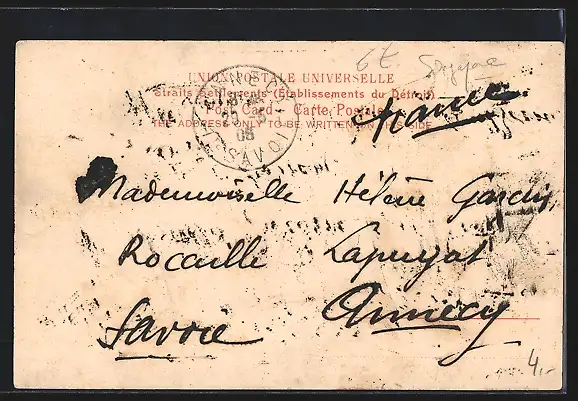 6€
UNION POSTALE UNIVERSELLE
Straits Settlements (Etablissements du Détroit)
Post Card - Carte Postale
THE ADDRESS ONLY TO BE WRITTEN ON THIS SIDE
France
08
SAVOIE
Mademoiselle Hélène
Rocaille
Savoie Annecy
4.-